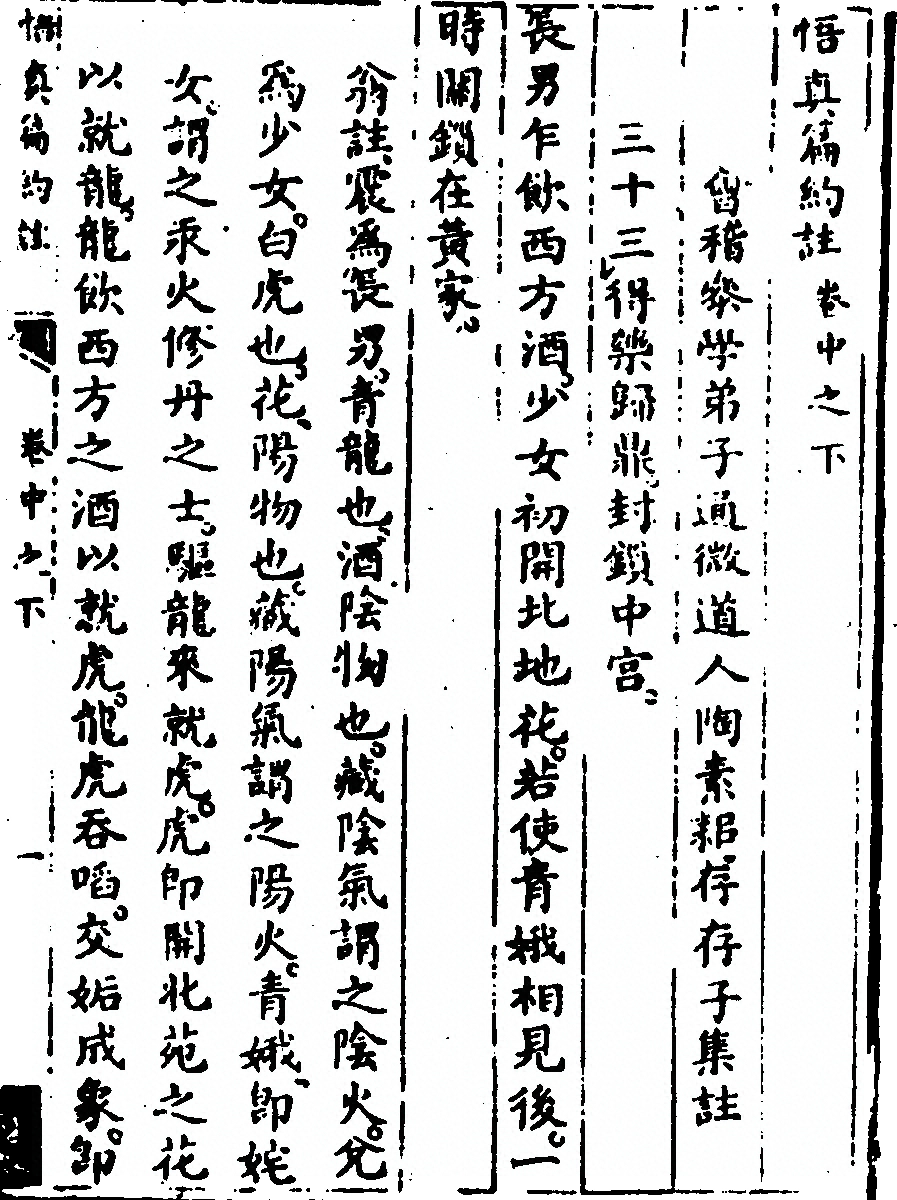 悟真篇約註 卷中之下
會稽參學弟子通微道人陶素耜存存子集註
三十三得藥歸鼎封鎖中宮
長男乍飲西方酒少女初開北地花若使青娥相見後一
時關鎖在黃家
翁註震爲長男青龍也酒陰物也藏陰氣謂之陰火兌
爲少女白虎也花陽物也藏陽氣謂之陽火青娥卽姹
女謂之汞火修丹之士驅龍來就虎虎卽開北苑之花
以就龍龍飲西方之酒以就虎龍虎吞啗交姤成象卽
悟真篇約註 卷中之下 一